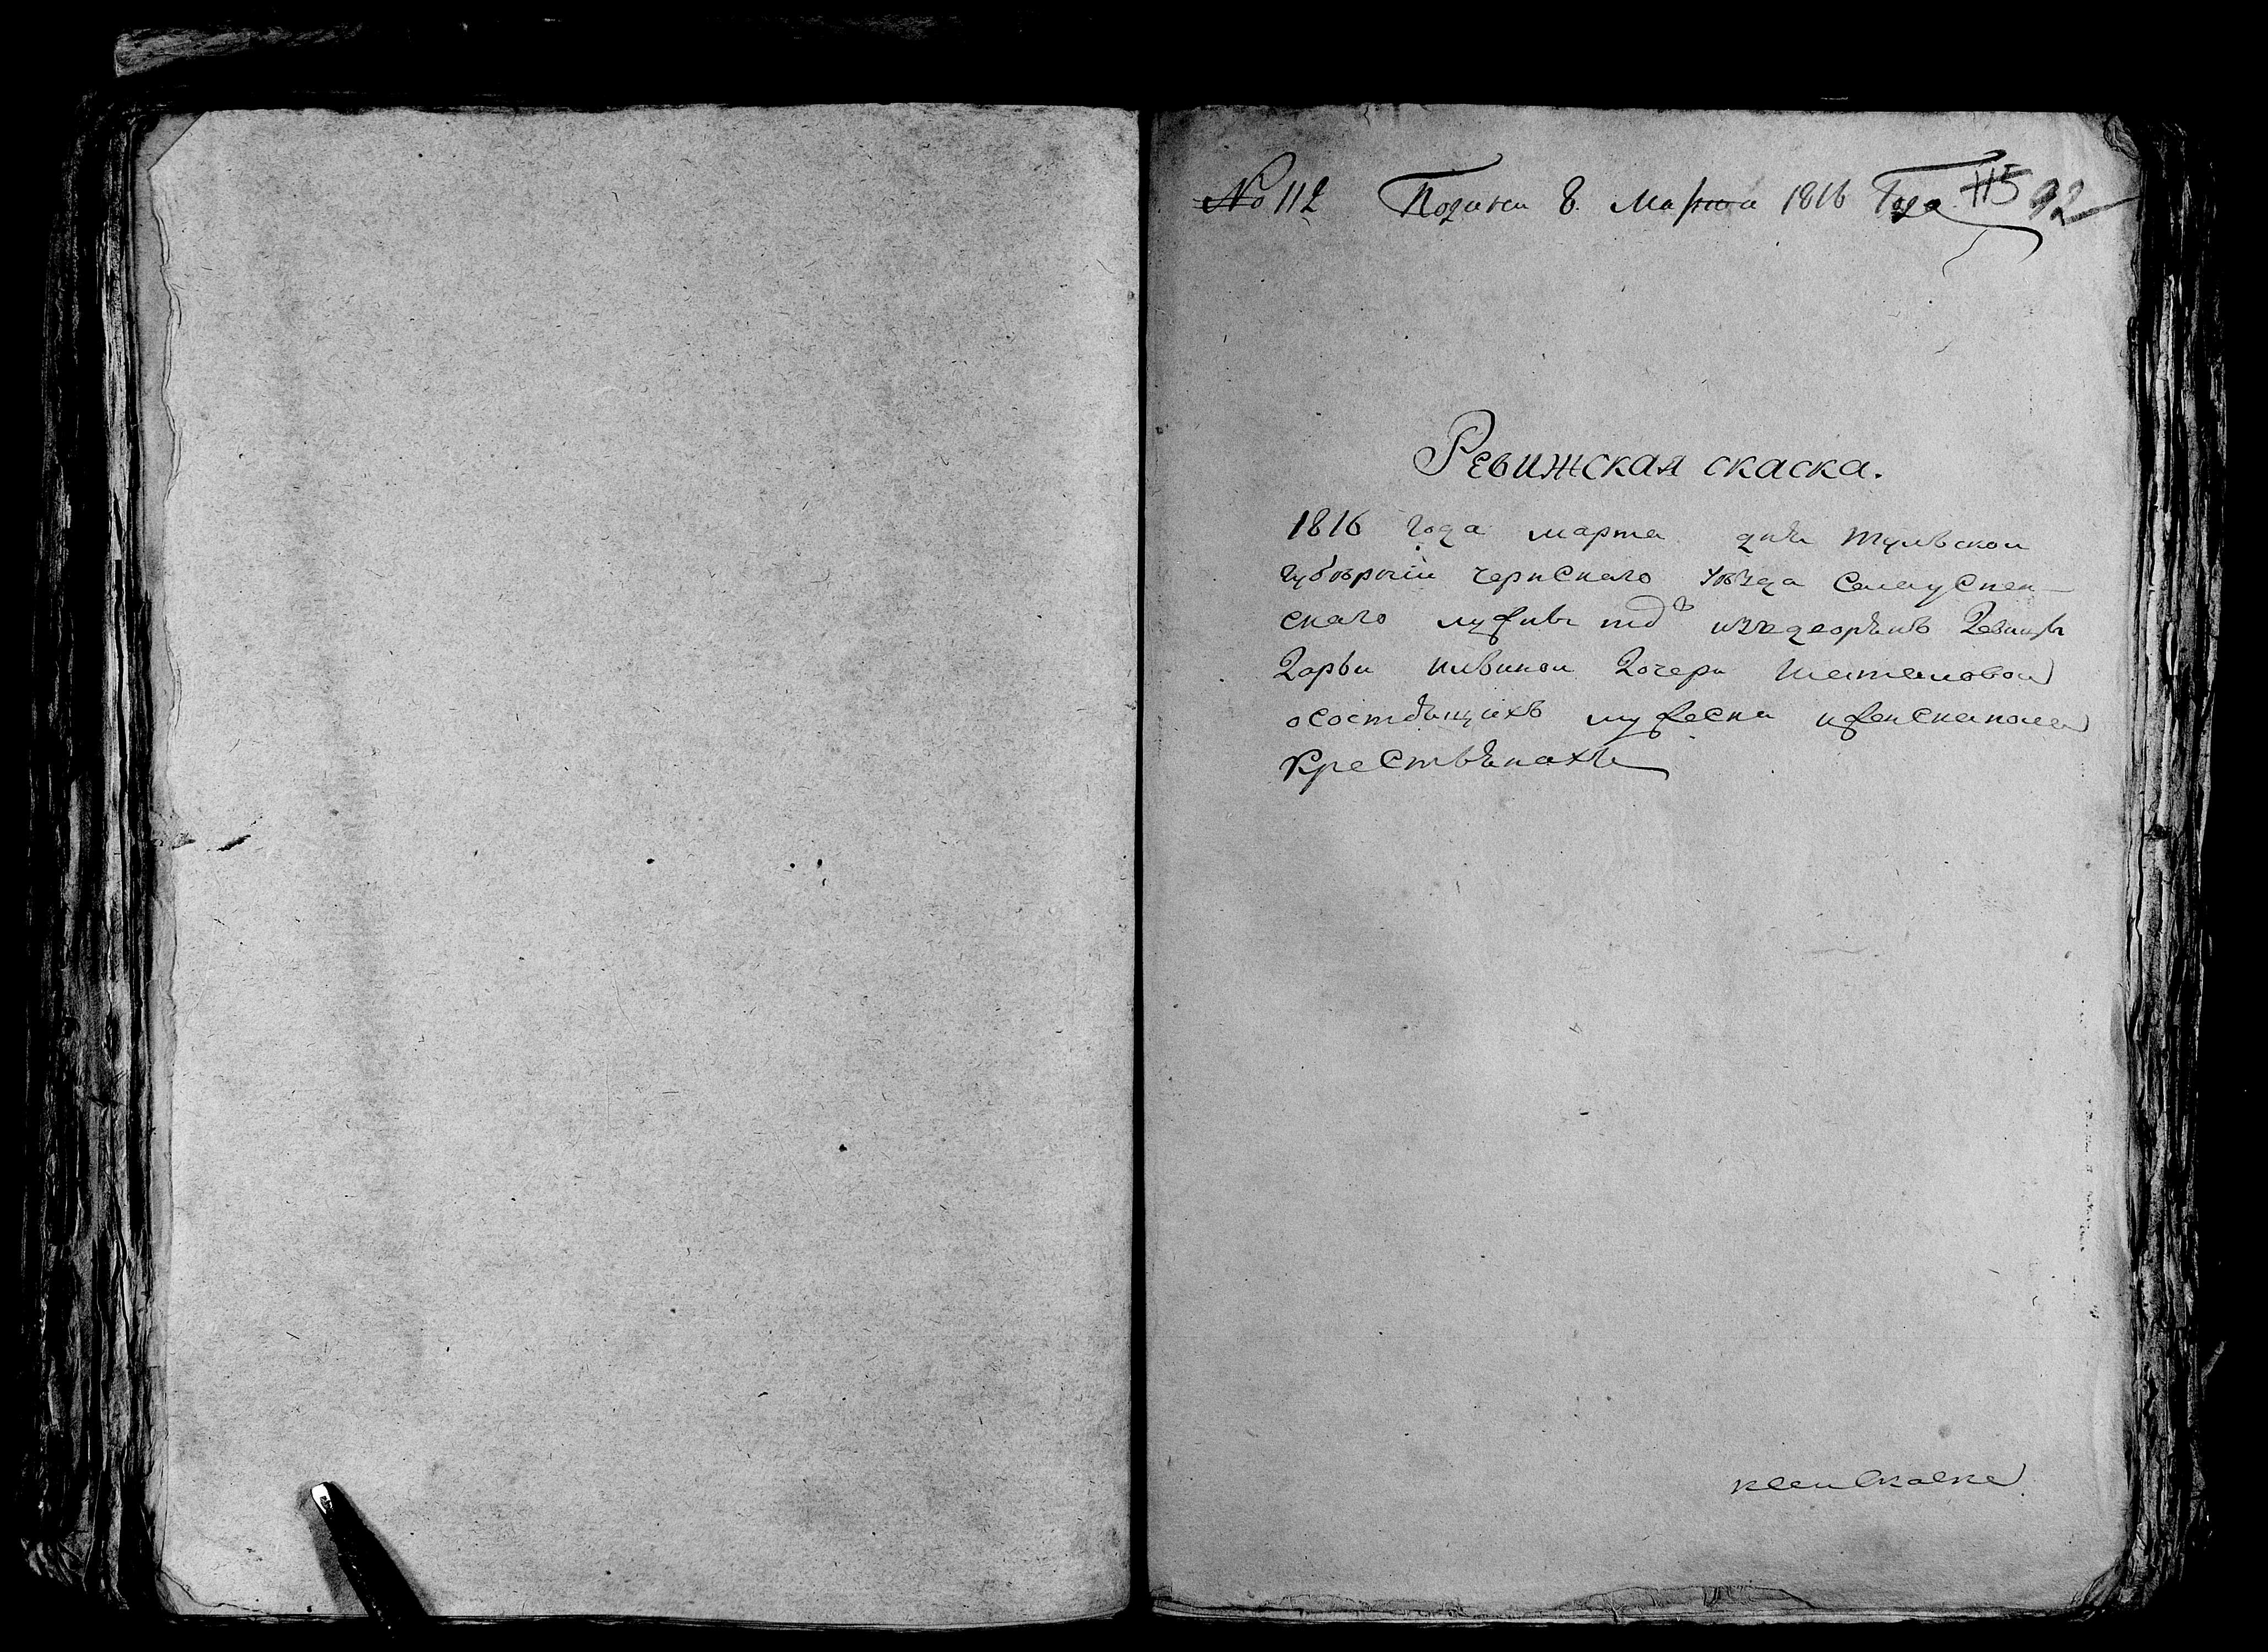 № 112 Подана 8. Марта 1816 Года 115 92
Ревижская скаска.
1816 года марта дня тульской
губернїи чернскаго уезда села успен-
скаго лужны тожъ из дворянъ Девицы
Дарьи Дочери Шеталовой
осостоящихъ мужеска иженска пола
крестьянахъ
ксей скаске